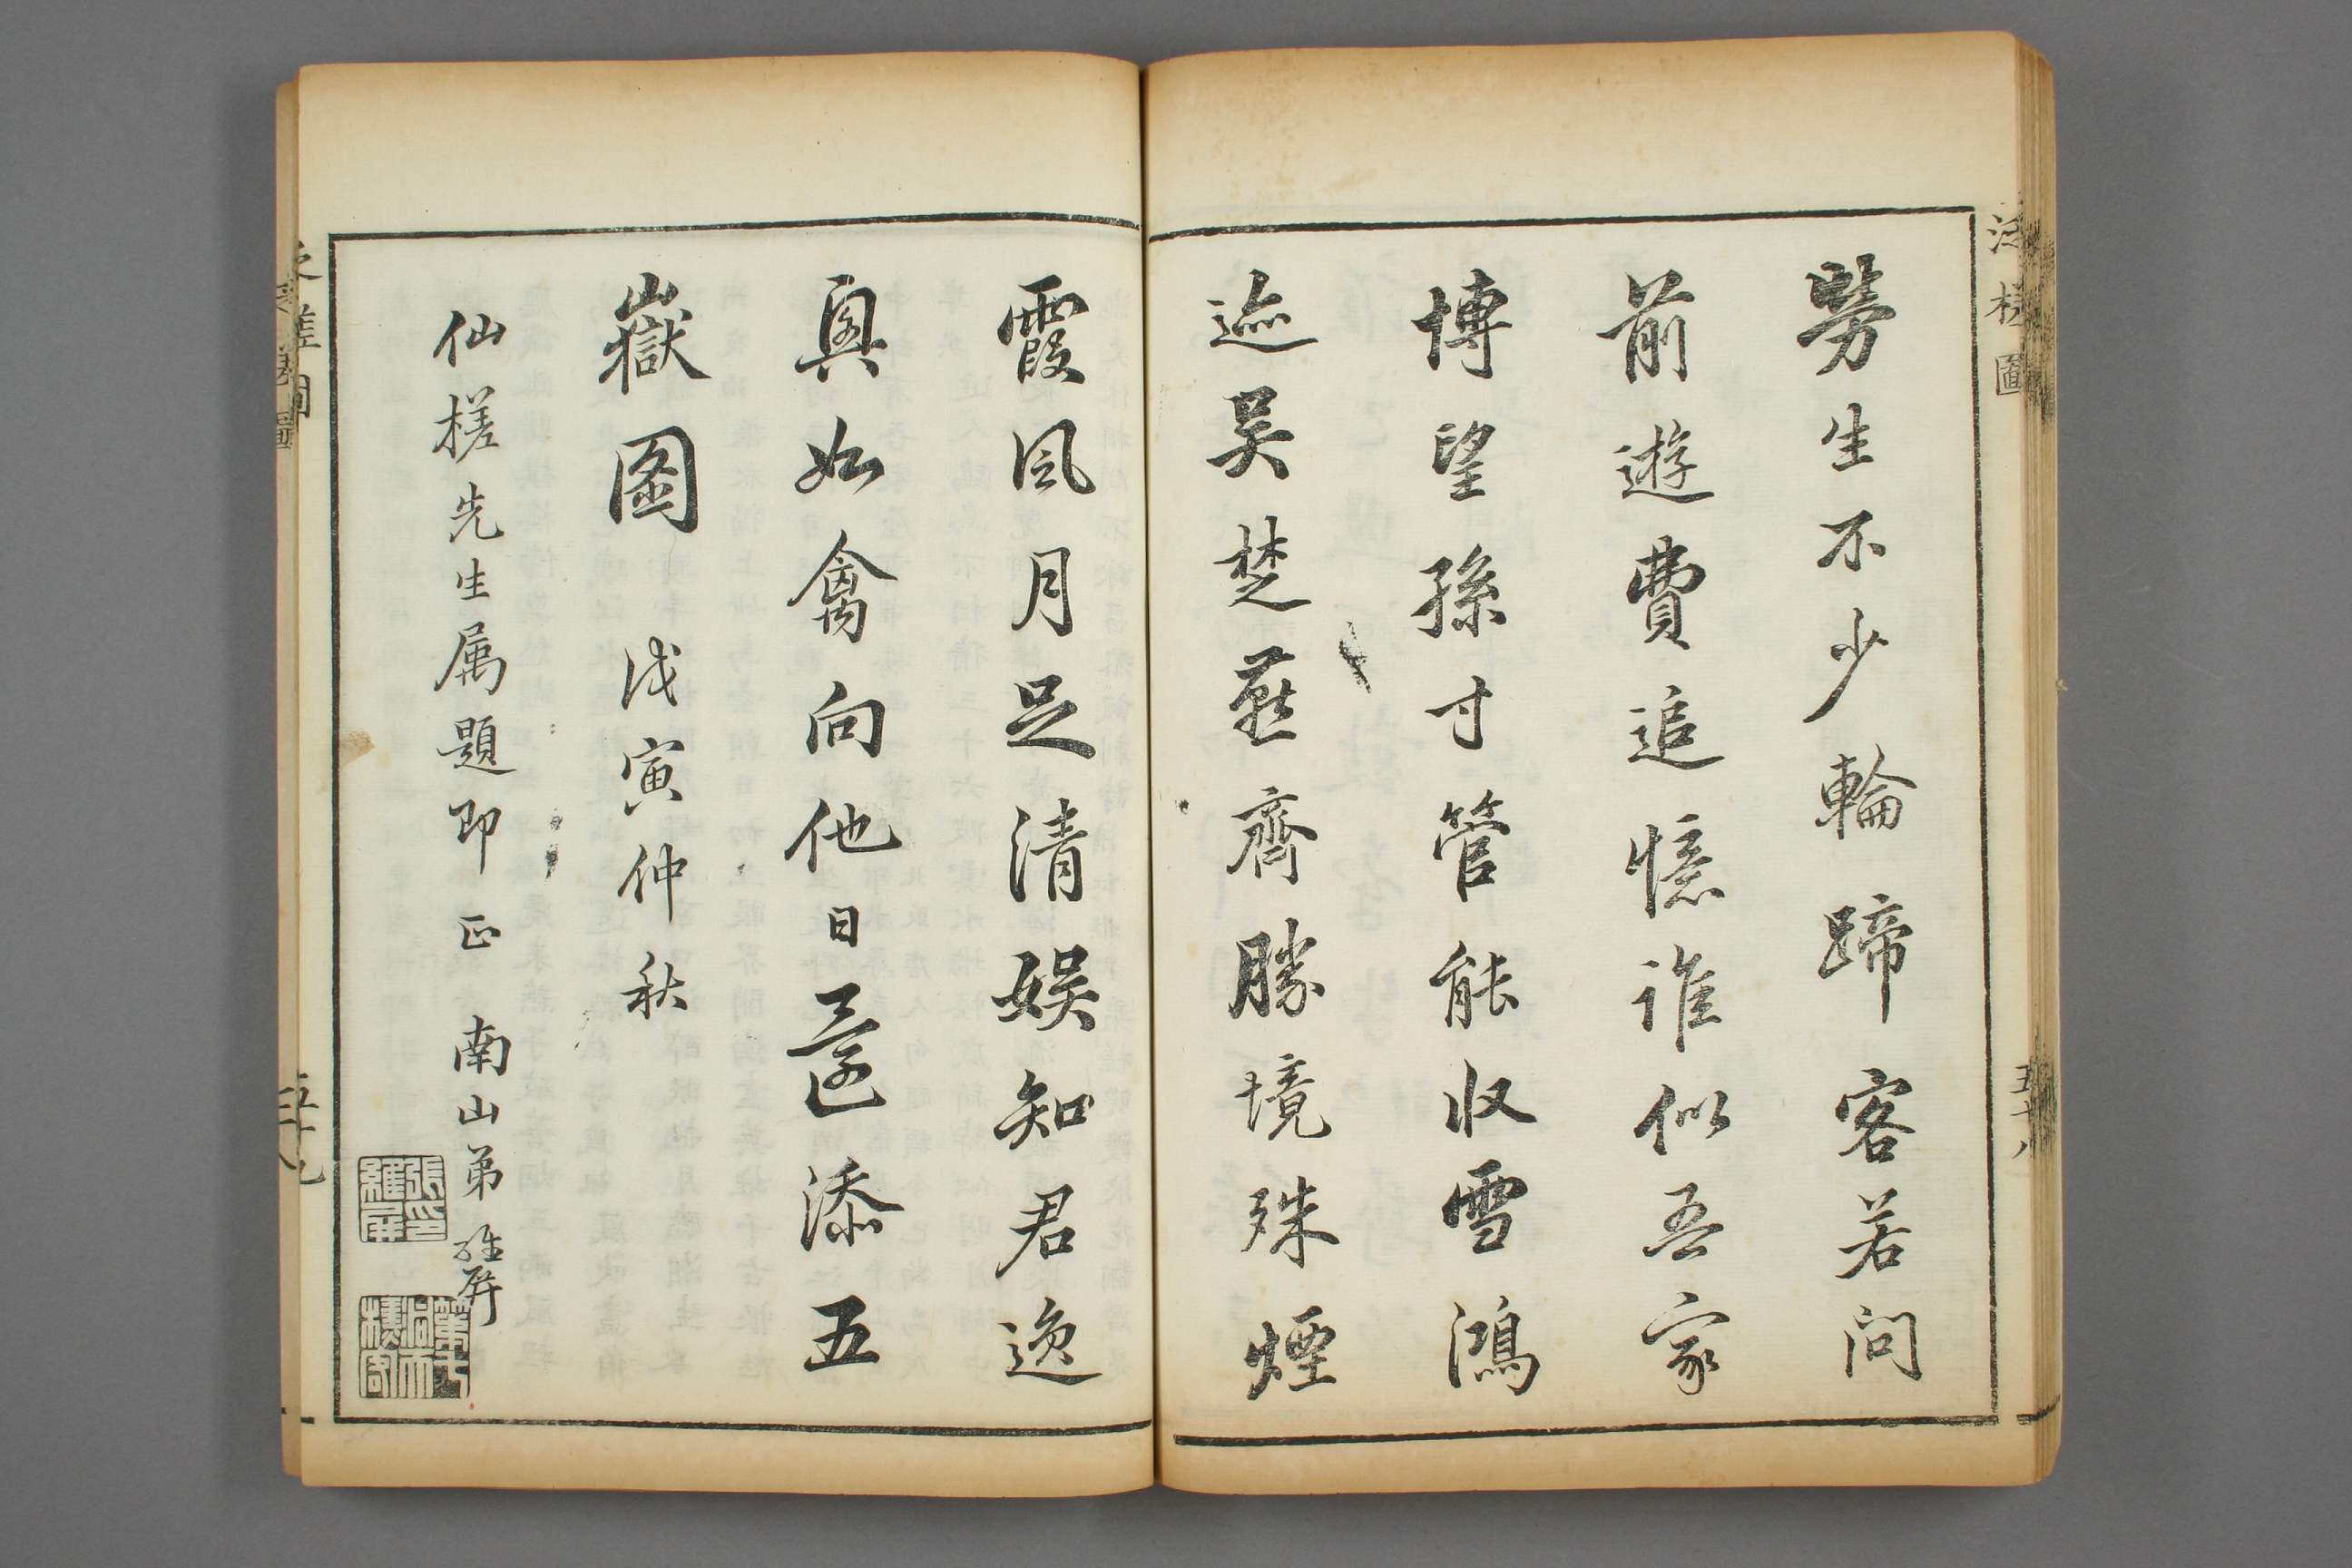 勞生不少輪蹄客若問
前遊費追憶誰似吾家
博望孫寸管能收雪鴻
迹吳楚燕齊勝境殊煙
霞風月足清娛知君逸
興如禽向他日還添五
嶽圖 戊寅仲秋
仙槎先生屬題即正 南山弟維屏
張印維屏
泛槎圖
五十八
五十九